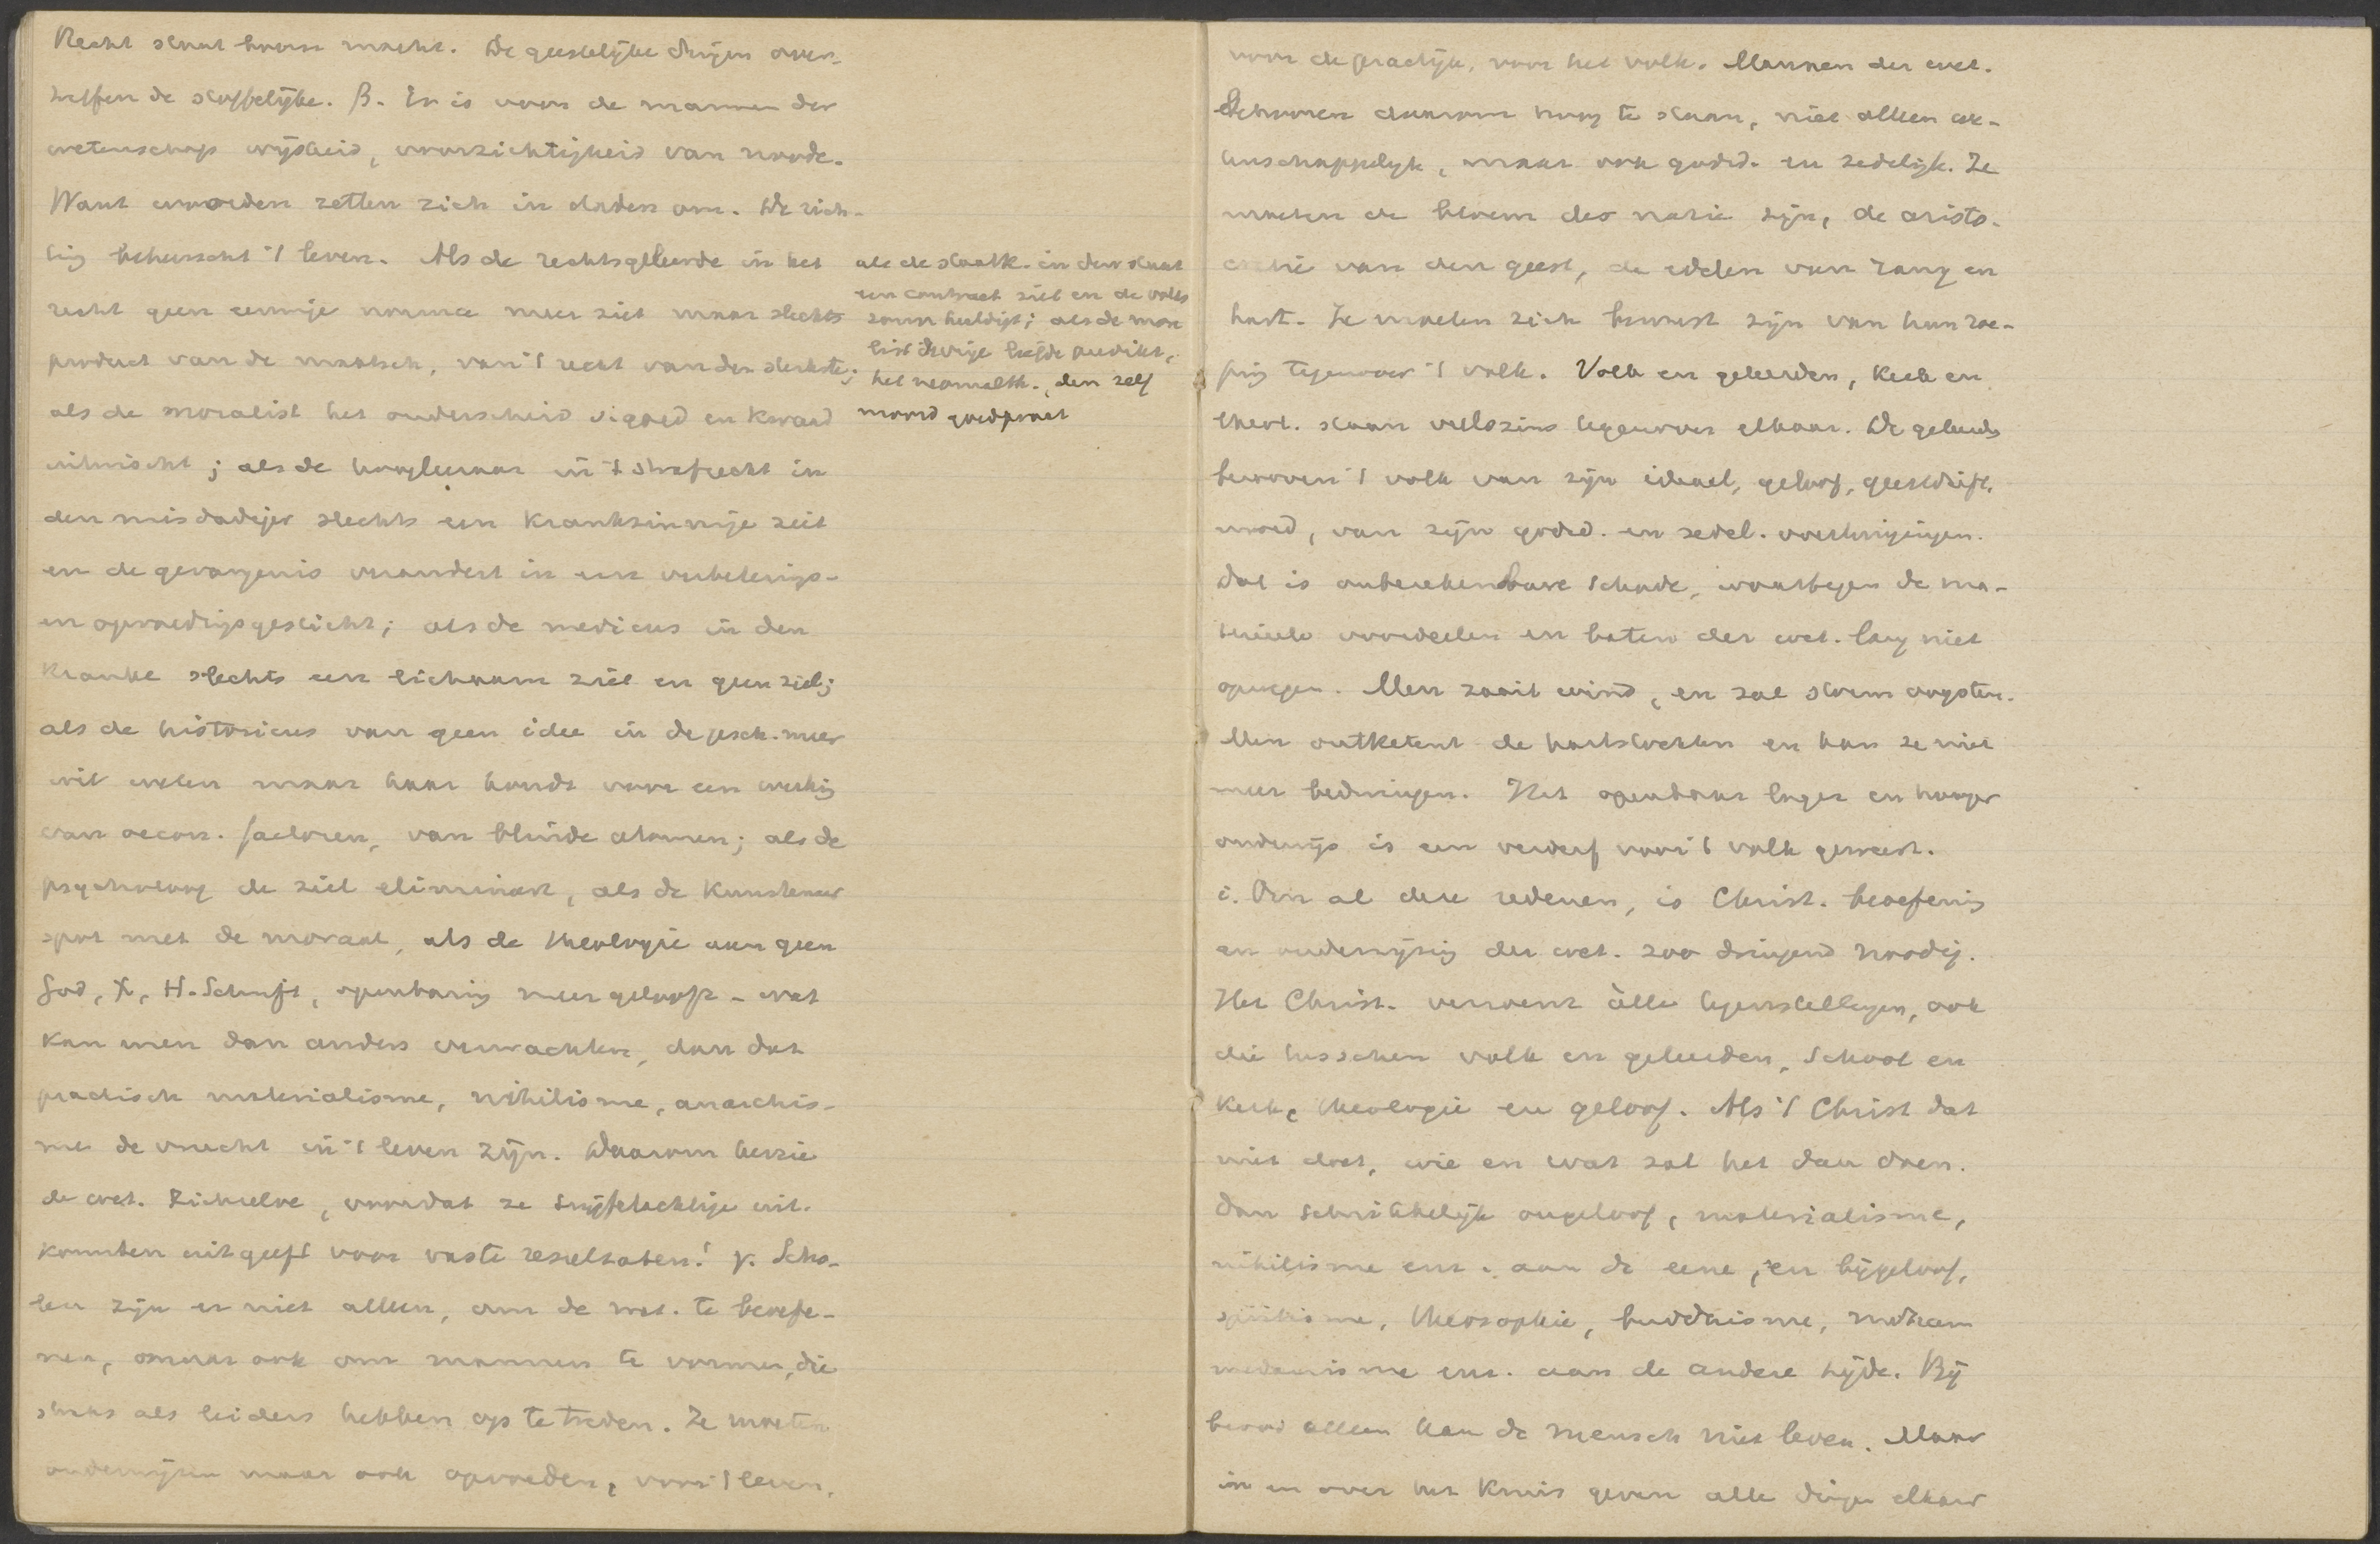 Recht staat boven macht. De geestelijke dingen over-
treffen de stoffelijke. β. Er is voor de mannen der
wetenschap wijsheid, voorzichtigheid van noode.
Want woorden zetten zich in daden om. De rich-
ting beheerscht 't leven. Als de rechtsgeleerde in het
recht geen eeuwige norma meer ziet maar slechts
product van de maatsch, van 't recht van den sterkste;
als de moralist het onderscheid v. goed en kwaad
uitwischt; als de hoogleeraar in 't strafrecht in
den misdadiger slechts een krankzinnige ziet
en de gevangenis verandert in een verbeterings-
en opvoedingsgesticht; als de medicus in den
kranke slechts een lichaam ziet en geen ziel;
als de historicus van geen idee in de gesch. meer
wil weten maar haar houdt voor een werking
van oecon. factoren, van blinde atomen; als de
psycholoog de ziel elimineert, als de kunstenaar
spot met de moraal, als de theologie aan geen
God, X, H. Schrift, openbaring meer gelooft - wat
kan men dan anders verwachten, dan dat
practisch materialisme, nihilisme, anarchis-
me de vrucht in 't leven zijn. Daarom herzie
de wet. zichzelve, voordat ze twijfelachtige uit-
komsten uitgeeft voor vaste resultaten! γ. Scho-
len zijn er niet alleen, om de wet. te beoefe-
nen, maar ook om mannen te vormen, die
straks als leiders hebben op te treden. Ze moeten
onderwijzen maar ook opvoeden, voor 't leven,
als de staatk. in den staat
een contract ziet en de volks
souv. huldigt; als de mora
list de vrije liefde predikt,
het neomalth., den zelf
moord goedpraat
voor de practijk, voor het volk. Mannen der wet.
behooren daarom hoog te staan, niet alleen we-
tenschappelijk, maar ook godsd. en zedelijk. Ze
moeten de bloem der natie zijn, de aristo-
cratie van den geest, de edelen van rang en
hart. Ze moeten zich bewust zijn van hun roe-
ping tegenover 't volk. Volk en geleerden, kerk en
theol. staan veelszins tegenover elkaar. De geleerds
berooven 't volk van zijn ideaal, geloof, geestdrift,
moed, van zijn godsd. en zedel. overtuigingen.
Dat is onberekenbare schade, waartegen de ma-
terieele voordeelen en baten der wet. lang niet
opwegen. Men zaait wind, en zal storm oogsten.
Men ontketent de hartstochten en kan ze niet
meer bedwingen. Het openbaar lager en hooger
onderwijs is een verderf voor 't volk geweest.
i. Om al deze redenen, is Christ. beoefening
en onderwijzing der wet. zoo dringend noodig.
Het Christ. verzoent àlle tegenstellingen, ook
die tusschen volk en geleerden, school en
kerk, theologie en geloof. Als 't Christ dat
niet doet, wie en wat zal het dan doen.
Dan schrikkelijk ongeloof, materialisme,
nihilisme enz. aan de eene, en bijgeloof,
spiritisme, theosophie, buddhisme, moham
medanisme enz. aan de andere zijde. Bij
brood alleen kan de mensch niet leven. Maar
in en over het kruis geven alle dingen elkaar